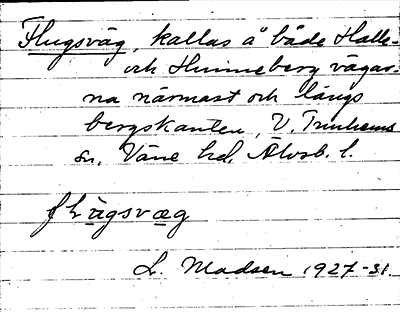 Flugsväg, kallas å både Halle-
och Hunneberg vägar-
na närmast och längs
bergskanten, V. Tunhems
sn, Väne hd, Älvsb. l.
L. Madsen 1927-31.